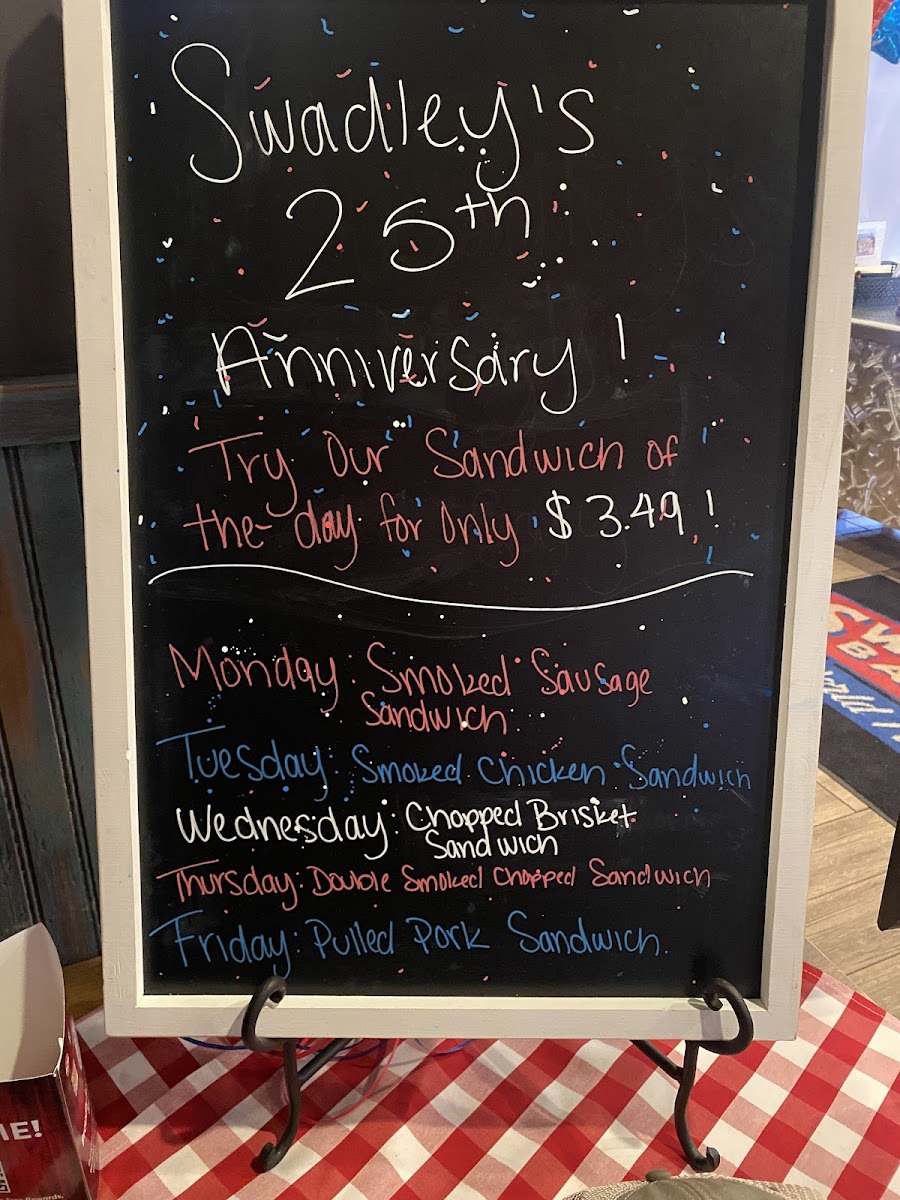 Swadley's
25th
Anniversary!
Try Our Sandwich of
the day for Only $3.49!
Monday: Smoked Sausage
Sandwich
Tuesday: Smoked Chicken Sandwich
Wednesday: Chopped Brisket
Sandwich
Thursday: Double Smoked Chopped Sandwich
Friday: Pulled Pork Sandwich